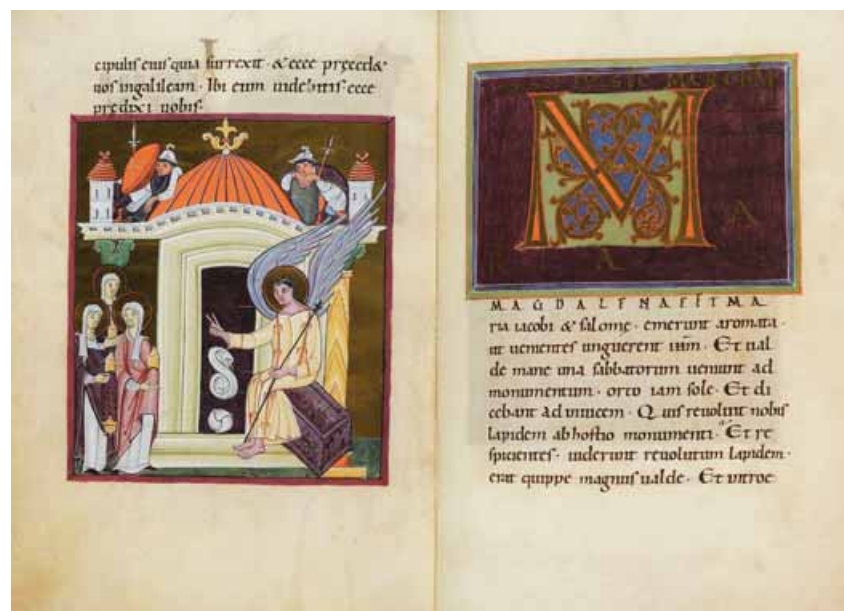 cipulis eius quia surrexit · & ecce preced&
uos in galileam · Ibi eum uidebitis ecce
predixi uobis ·
M
A
R A
MAGDALENA ET MA
ria iacobi & salome · emerunt aromata ·
ut uenientes unguerent ·
Et ual
de mane una sabbatorum ueniunt ad
monumentum · orto iam sole · Et di
cebant ad inuicem · Quis reuoluit nobis
lapidem ab hostio monumenti · Et re
spicientes · uiderunt reuolutum lapidem ·
erat quippe magnus ualde · Et introe